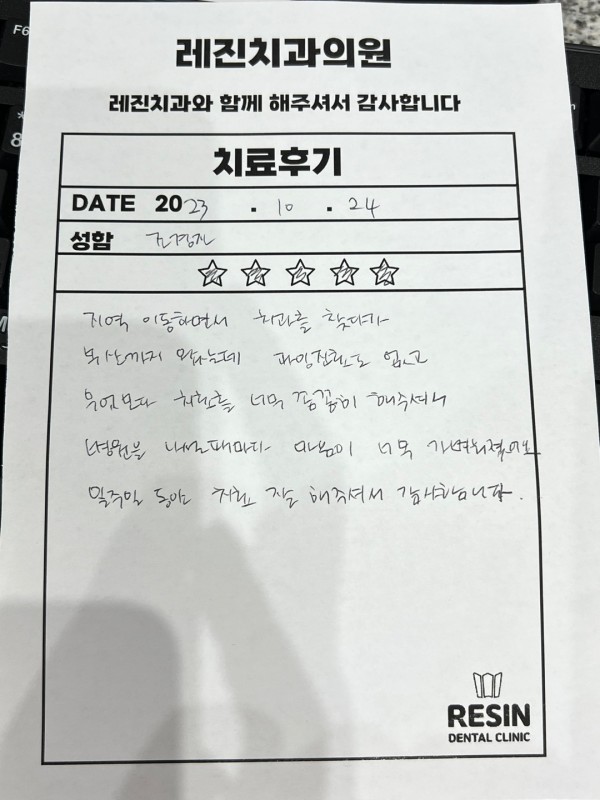 레진치과의원
레진치과와 함께 해주셔서 감사합니다
치료후기
DATE 2023 . 10 . 24
성함
지역 이동하면서 치과를 찾다가
부산까지 왔는데 과잉진료도 없고
무엇보다 치료를 너무 꼼꼼히 해주셔서
병원을 나설때마다 마음이 너무 가벼워졌어요
일주일 동안 치료 잘 해주셔서 감사합니다.
RESIN
DENTAL CLINIC
F6
8